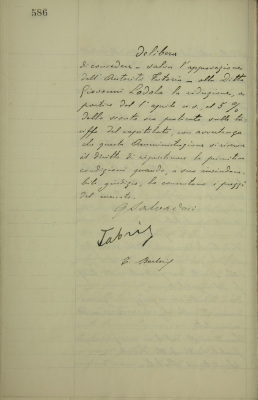 586
delibera
di concedere – salva l'approvazione
dell'Autorità tutoria – alla Ditta
Giovanni Lodola la riduzione, a
partire dal 1° aprile a.s. al 5 %
dello sconto ora praticato sulla ta-
riffa del capitolato, con avvertenza
che questa Amministrazione si riserva
il diritto di ripristinare le primitive
condizioni quando, a suo insindaca-
bile giudizio, lo consentano i prezzi
del mercato.
G. Salvadori
Fabris